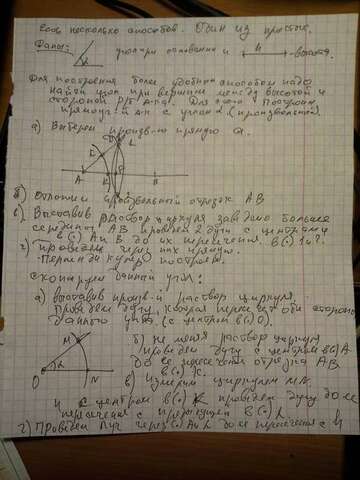 Есть несколько способов. Один из простых.
Дано: угол при основании и h высота.
Для построения более удобным способом надо
найти угол при вершине между высотой и
стороной р/б Δ-ка. Для этого построим
прямоуг. Δ-к с углом α (произвольный
а) Выберем произв-ю прямую a.
L
K
A
K
B
б) Отложим произвольный отрезок AB
в) Выставив раствор циркуля заведомо больше
середины AB проведем 2 дуги с центрами
в (·) A и B до их пересечения в (·) 1 и 2
г) проведем через них прямую.
Перпендикуляр построен.
скопируем данный угол:
а) выставив произв-й раствор циркуля
проведем дугу, которая пересечет обе стороны
данного угла (с центром в (·) O).
M
O
α
N
б) не меняя раствор циркуля
проведем дугу с центром в (·) A
до пересечения отрезка AB
в (·) K.
в) измерим циркулем MN
и с центром в (·) K проведем дугу до ее
пересечения с предыдущей в (·) L
г) Проведем луч через (·) A и L до пересечения с